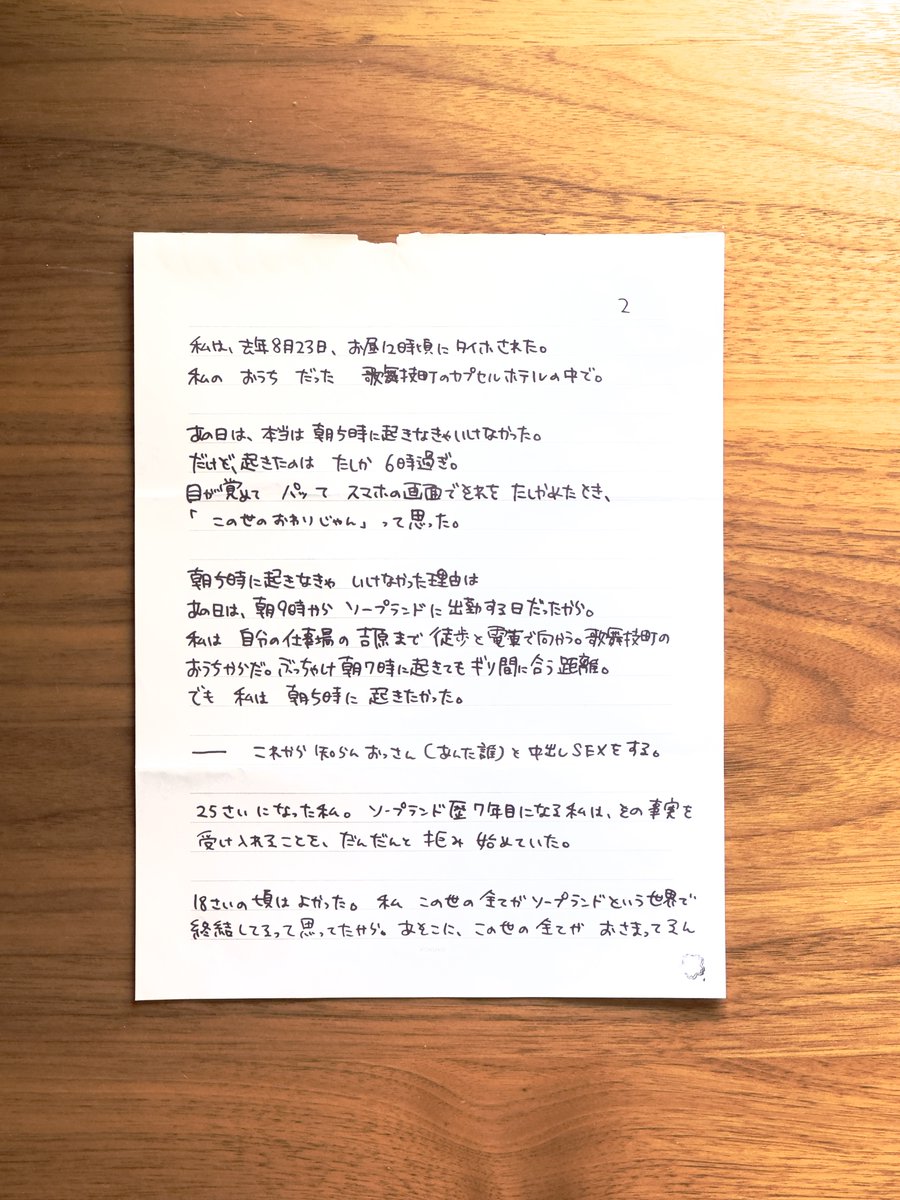 2
私は、去年8月23日、お昼12時頃にタイホされた。
私の おうち だった 歌舞伎町のカプセルホテルの中で。
あの日は、本当は朝5時に起きなきゃいけなかった。
だけど、起きたのは たしか 6時過ぎ。
目が覚めて パッて スマホの画面でそれを たしかめたとき、
「 この世のおわりじゃん」って思った。
朝5時に起きなきゃ いけなかった理由は
あの日は、朝9時から ソープランドに出勤する日だったから。
私は 自分の仕事場の 吉原まで 徒歩と電車で向かう。歌舞伎町の
おうちからだ。ぶっちゃけ朝7時に起きてもギリ間に合う距離。
でも 私は 朝5時に 起きたかった。
―― これから 知らん おっさん(あんた誰)と中出しSEXをする。
25さいになった私。 ソープランド歴7年目になる私は、その事実を
受け入れることを、だんだんと 拒み 始めていた。
18さいの頃はよかった。私 この世の全てがソープランドという世界で
終結してるって思ってたから。あそこに、この世の全てが おさまってるん